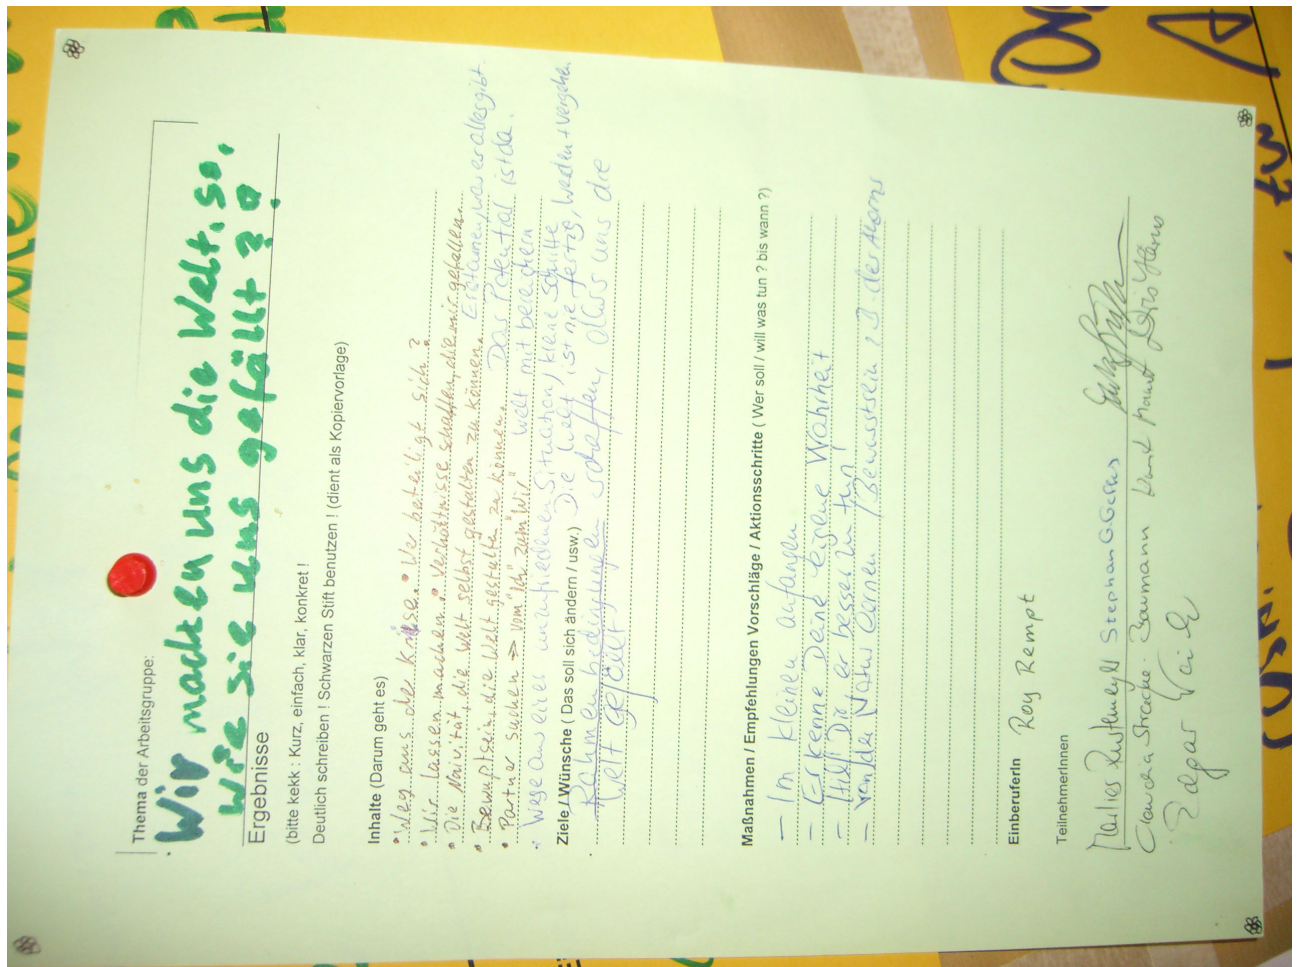 Thema der Arbeitsgruppe:
Wir machen uns die Welt, so,
wie sie uns gefällt ?
Ergebnisse
(bitte kekk : Kurz, einfach, klar, konkret !
Deutlich schreiben ! Schwarzen Stift benutzen ! (dient als Kopiervorlage)
Inhalte (Darum geht es)
• Weg aus der Krise. • Wer beteiligt sich ?
• Wir lassen machen. • Verhältnisse schaffen, die mir gefallen.
• Die Naivität, die Welt selbst gestalten zu können. Erstaunen, was er alles gibt.
• Bewußtsein, die Welt gestalten zu können. Das Potential ist da.
• Partner suchen => vom "Ich" zum "Wir" Welt mit beachten
• Wege aus einer unzufriedenen Situation, kleine Schritte
Ziele / Wünsche ( Das soll sich ändern / usw.) Die Welt ist nie fertig, werden + vergehen.
Rahmenbedingungen schaffen, dass uns die
Welt gefällt
Maßnahmen / Empfehlungen Vorschläge / Aktionsschritte ( Wer soll / will was tun ? bis wann ?)
– Im kleinen anfangen
– Erkenne Deine eigene Wahrheit
– Hilf Dir, es besser zu tun
– von der Natur lernen / Bewusstsein z.B. der Atome
EinberuferIn Roy Rempt
TeilnehmerInnen
Marlies Stephan G. Gerus
Claudia Strache Baumann
Edgar